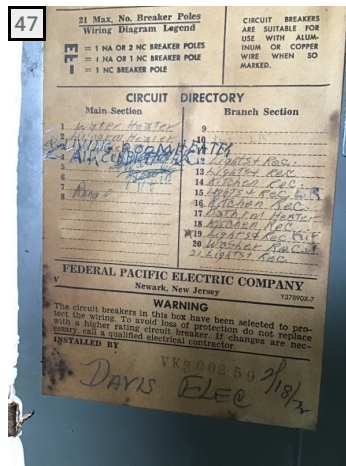 47
21 Max. No. Breaker Poles
Wiring Diagram Legend
= 1 NA OR 2 NC BREAKER POLES
= 1 NA OR 1 NC BREAKER POLE
= 1 NC BREAKER POLE
CIRCUIT BREAKERS
ARE SUITABLE FOR
USE WITH ALUM-
INUM OR COPPER
WIRE WHEN SO
MARKED.
CIRCUIT DIRECTORY
Main Section
1 Water Heater
2 Heater
3 LIVING ROOM HEATER
4 AIR
5
6
7
8 Range
Branch Section
9
10
11
12 Lights & Rec.
13 Lights Rec
14 Kitchen Rec
15 Lights & Rec
16 Kitchen Rec.
17 Bathrm Heater
18 Kitchen Rec
19 Lights & Rec
20 Washer Rec.
21 Lights & Rec
FEDERAL PACIFIC ELECTRIC COMPANY
Newark, New Jersey
Y37890X-7
WARNING
The circuit breakers in this box have been selected to pro-
tect the wiring. To avoid loss of protection do not replace
with a higher rating circuit breaker. If changes are nec-
essary, call a qualified electrical contractor.
INSTALLED BY
DAVIS ELEC